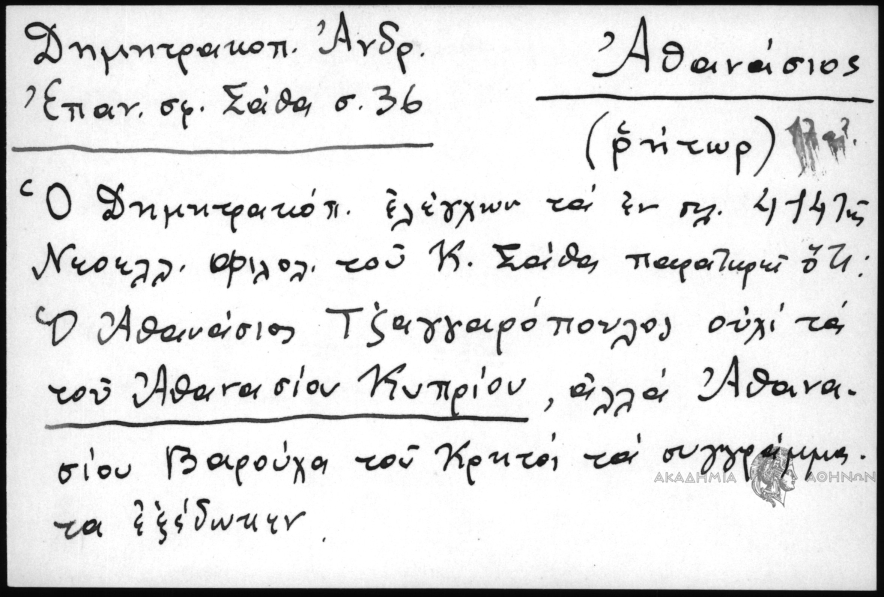 Δημητρακοπ. Ἀνδρ.
Ἐπαν. σφ. Σάθα σ. 36
Ἀθανάσιος
(ῥήτωρ)
Ὁ Δημητρακόπ. ἐλέγχων τά ἐν σελ. 414 τῆς
Νεοελλ. φιλολ. τοῦ Κ. Σάθα παρατηρεῖ ὅτι:
Ὁ Ἀθανάσιος Τζαγγαρόπουλος οὐχί τά
τοῦ Ἀθανασίου Κυπρίου, ἀλλά Ἀθανα-
σίου Βαρούχα τοῦ Κρητός τά συγγράμμα-
τα ἐξέδωκεν
ΑΚΑΔΗΜΙΑ ΑΘΗΝΩΝ